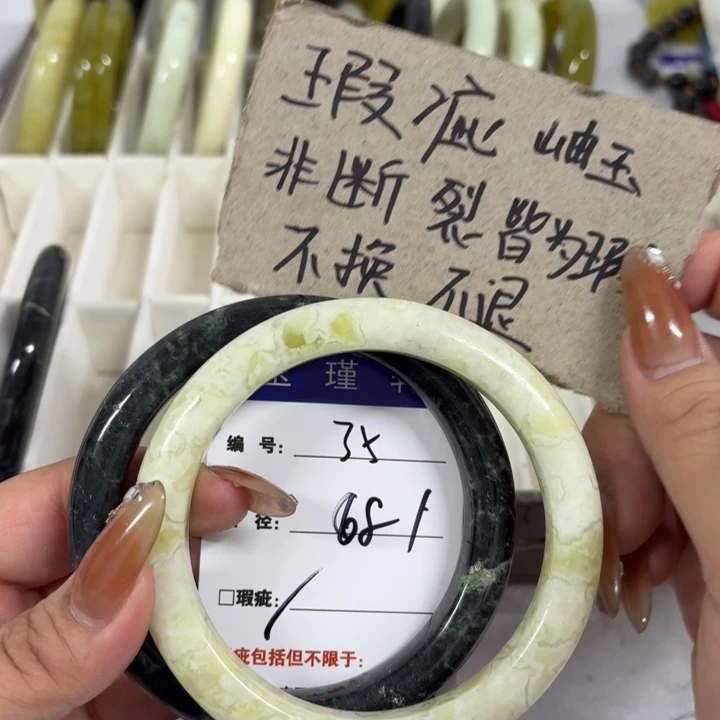 瑕疵 岫玉
非断裂皆为瑕
不换 不退
瑾
编号: 35
径: 68-1
□瑕疵: /
疵包括但不限于: